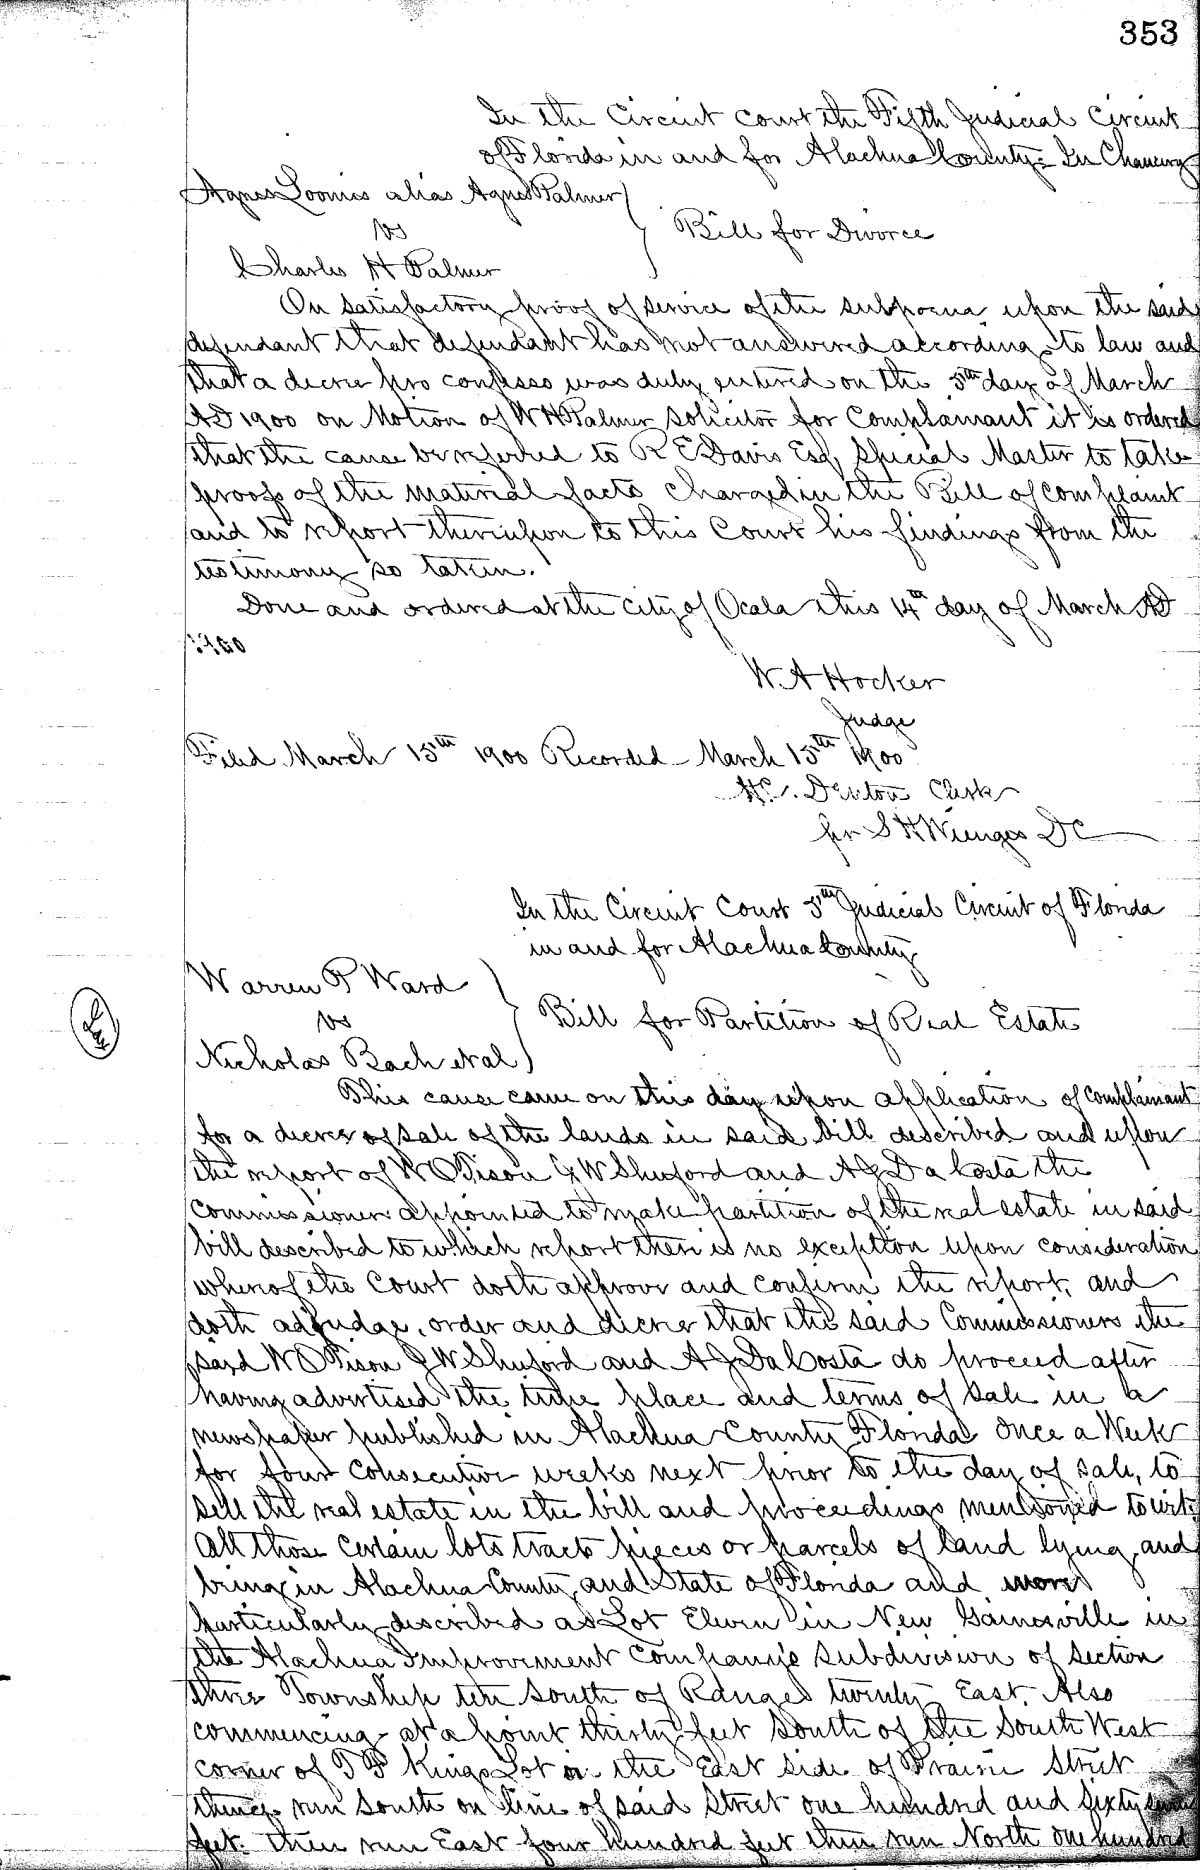 353
In the Circuit Court the Fifth Judicial Circuit
of Florida in and for Alachua County - In Chancery
Agnes Loomis alias Agnes Palmer
vs
Bill for Divorce
Charles H Palmer
On satisfactory proof of service of the subpoena upon the said
defendant that defendant has not answered according to law and
that a decree pro confesso was duly entered on the 5th day of March
AD 1900 on Motion of W H Palmer solicitor for Complainant it is ordered
that the cause be referred to R E Davis Esq, Special Master to take
proofs of the material facts charged in the Bill of complaint
and to report thereupon to this Court his findings from the
testimony so taken.
Done and ordered at the city of Ocala this 14th day of March AD
1900
W. A Hocker
Judge
Filed March 15th 1900 Recorded March 15th 1900
Denton Clerk
per S H Wienges DC
In the Circuit Court 5th Judicial Circuit of Florida
in and for Alachua County
Warren P Ward
vs
Bill for Partition of Real Estate
Nicholas Bach et al
This cause came on this day upon application of complainant
for a decree of sale of the lands in said bill described and upon
the report of W O Tison G W Shuford and A J DaCosta the
commissioners appointed to make partition of the real estate in said
bill described to which report there is no exception upon consideration
whereof the Court doth approve and confirm the report, and
doth adjudge, order and decree that the said Commissioners the
said W O Tison G W Shuford and A J DaCosta do proceed after
having advertised the time place and terms of sale in a
newspaper published in Alachua County Florida once a Week
for four consecutive weeks next prior to the day of sale, to
sell the real estate in the bill and proceedings mentioned to wit:
All those certain lots tracts pieces or parcels of land lying and
being in Alachua County and State of Florida and more
particularly described as Lot Eleven in New Gainesville in
the Alachua Improvement Companys subdivision of section
three Township ten South of Range twenty East. Also
commencing at a point thirty feet South of the South West
corner of T P Kings Lot on the East side of Prairie Street
thence run South on line of said Street one hundred and Sixty seven
feet. then run East four hundred feet then run North one hundred